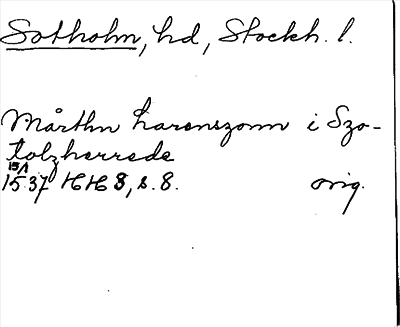 Sotholm, hd, Stockh. l.
Mårthn Larenszonn i Szo-
tolzherrede
15/1
1537 HH 8, s. 8. orig.